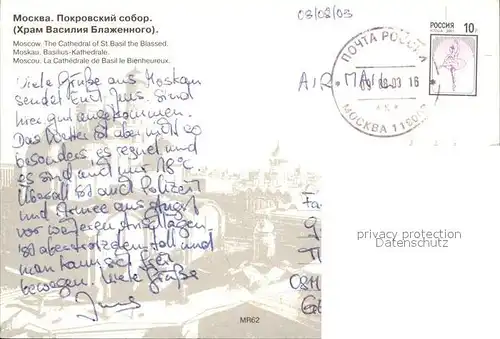 Москва. Покровский собор.
(Храм Василия Блаженного).
Moscow. The Cathedral of St. Basil the Blassed.
Moskau. Basilius-Kathedrale.
Moscou. La Cathédrale de Basil le Bienheureux.
03/08/03
AIR MAIL
ПОЧТА РОССИИ
03 16
МОСКВА
РОССИЯ
10
Viele Grüße aus Moskau
sendet Euch Jens. Sind
hier gut angekommen.
Das Wetter ist aber nicht so
besonders es regnet und
es sind auch nur 18°C
Überall ist auch Polizei
und Armee aus Angst
vor weiteren Anschlägen.
ist aber trotzdem toll und
man kann sich frei
bewegen. Viele Grüße
Jens
privacy protection
Datenschutz
MR62